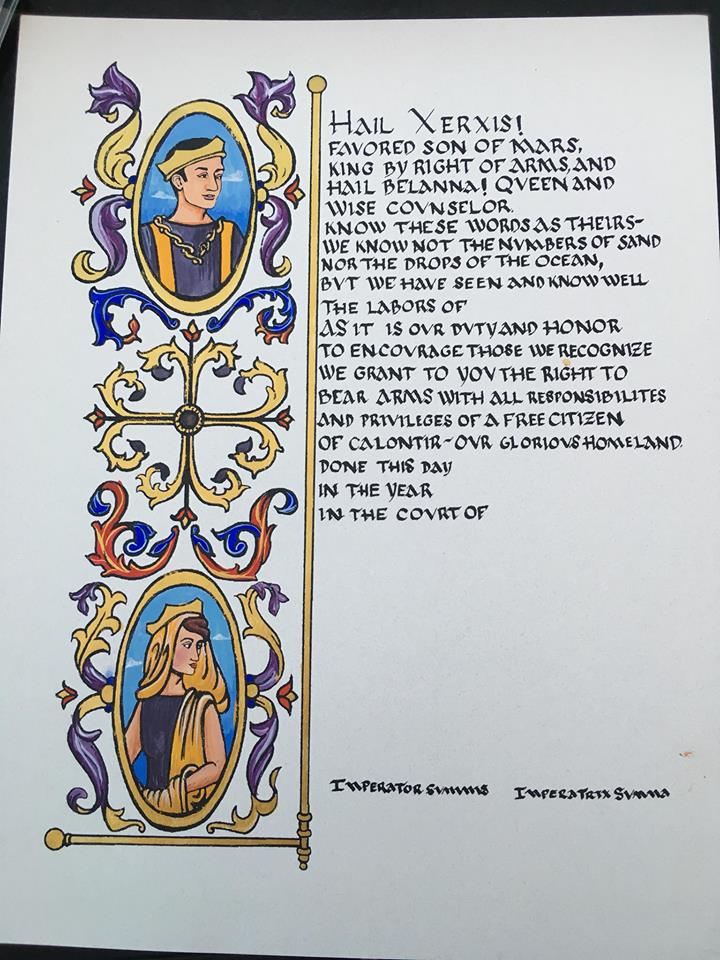 HAIL XERXIS!
FAVORED SON OF MARS,
KING BY RIGHT OF ARMS, AND
HAIL BELANNA! QVEEN AND
WISE COVNSELOR.
KNOW THESE WORDS AS THEIRS~
WE KNOW NOT THE NVMBERS OF SAND
NOR THE DROPS OF THE OCEAN,
BVT WE HAVE SEEN AND KNOW WELL
THE LABORS OF
AS IT IS OVR DVTY AND HONOR
TO ENCOVRAGE THOSE WE RECOGNIZE
WE GRANT TO YOV THE RIGHT TO
BEAR ARMS WITH ALL RESPONSIBILITES
AND PRIVILEGES OF A FREE CITIZEN
OF CALONTIR~OVR GLORIOVS HOMELAND.
DONE THIS DAY
IN THE YEAR
IN THE COVRT OF
IMPERATOR SVMMVS IMPERATRIX SVMMA